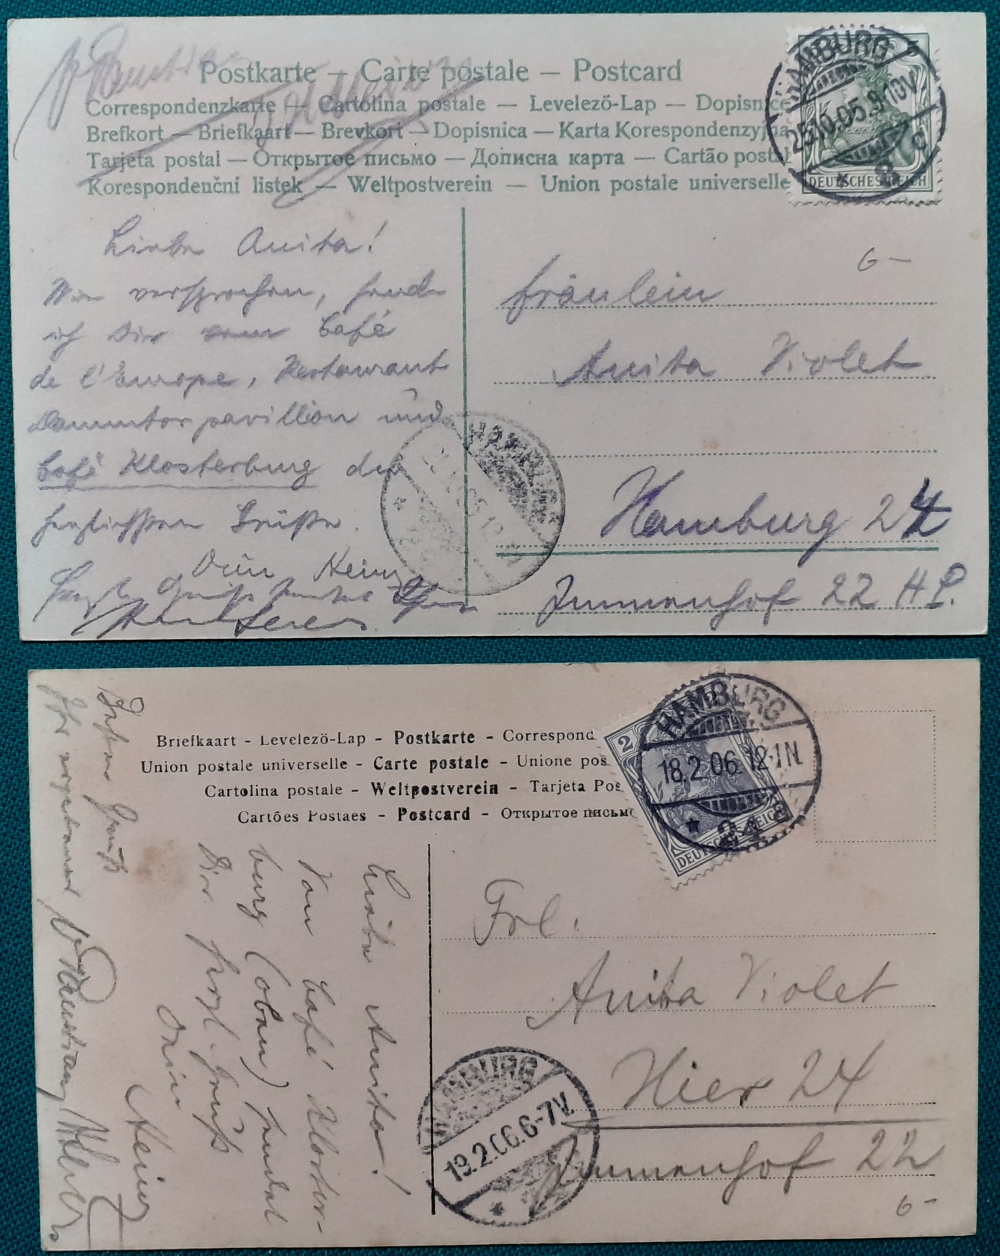 Postkarte — Carte postale — Postcard
Correspondenzkarte — Cartolina postale — Levelező-Lap — Dopisnice
Brefkort — Briefkaart — Brevkort — Dopisnica — Karta Korespondenzyjna
Tarjeta postal — Открытое письмо — Дописна карта — Cartão postal
Korespondenční listek — Weltpostverein — Union postale universelle
HAMBURG
25.10.05. 9-10V
* 8 c
DEUTSCHES REICH
6-
Liebe Anita!
Wie versprochen, sende
ich Dir vom Café
de l'Europe, Restaurant
Dammtorpavillion und
Café Klosterburg die
herzlichsten Grüße.
Dein Heinz
Fräulein
Anita Violet
Hamburg 24
Immenhof 22 H.P.
HAMBURG
Briefkaart - Levelező-Lap - Postkarte - Correspond
Union postale universelle - Carte postale - Unione pos
Cartolina postale - Weltpostverein - Tarjeta Pos
Cartões Postaes - Postcard - Открытое письмо
2
DEUTSCHES REICH
HAMBURG
18.2.06. 12-1N.
Liebe Anita!
Vom Café Kloster-
burg (oben) sendet
Dir herzl. Gruß
Dein
Heinz
Besten Gruß
Ihr ergebener
Frl.
Anita Violet
Hier 24
Immenhof 22
HAMBURG
19.2.06. 6-7V.
*
6-